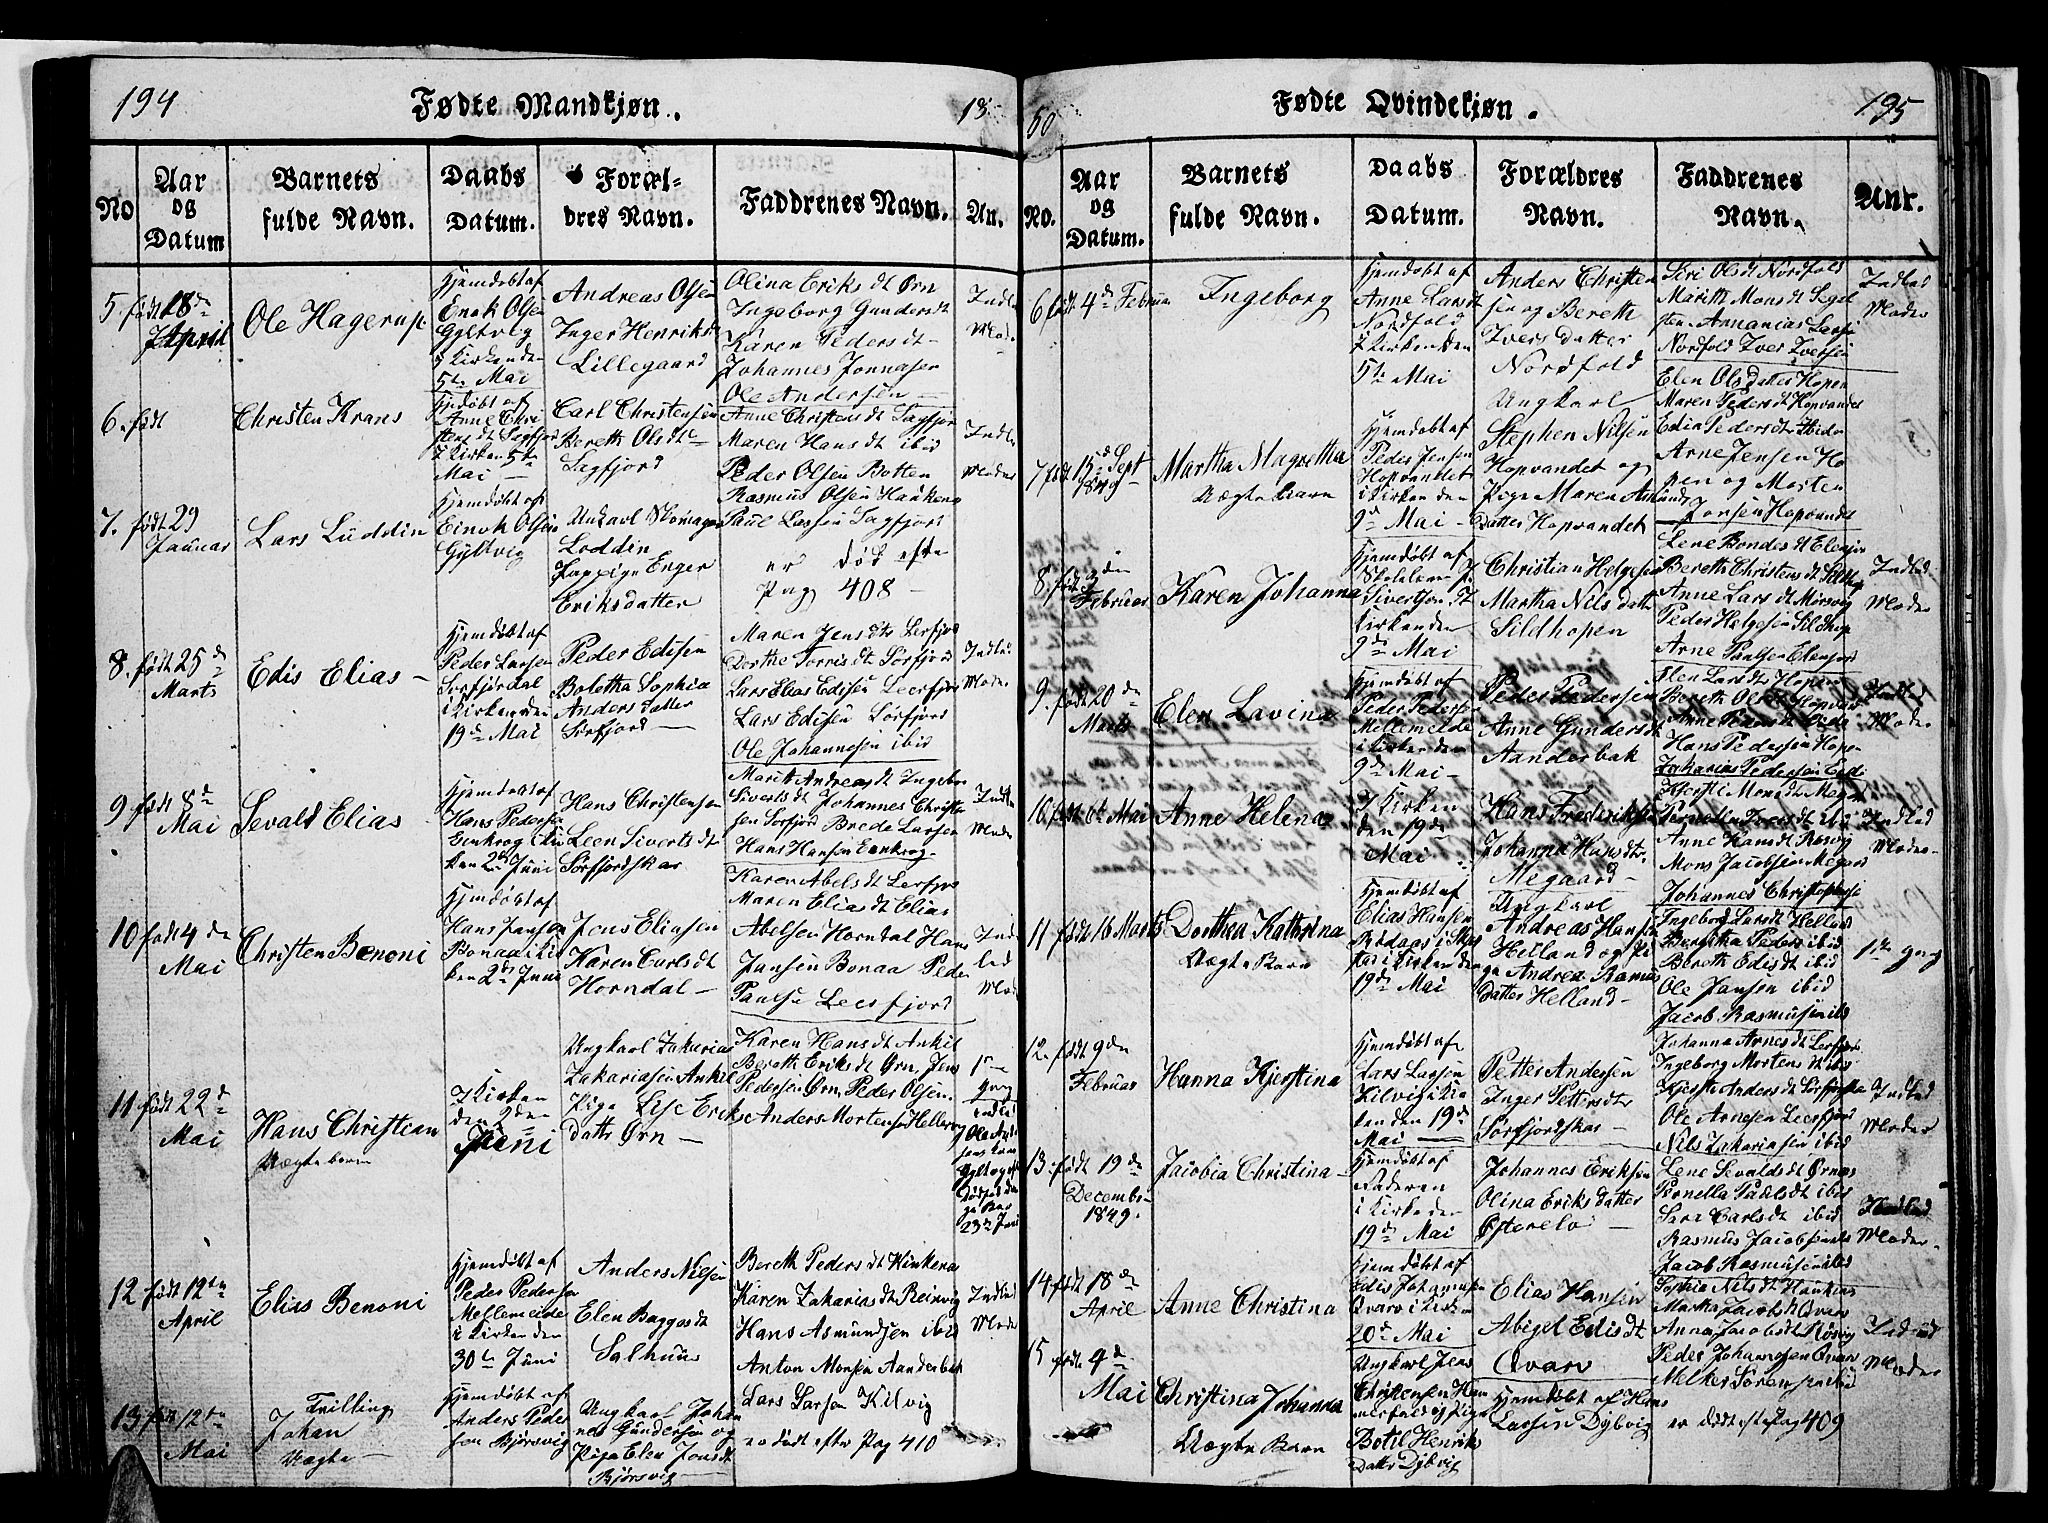 194
Fødte Mandkjøn.
18
No
Aar
og
Datum
Barnets
fulde Navn.
Daabs
Datum.
Foræl-
dres Navn.
Faddrenes Navn.
An.
5 født 18de
April
Ole Hagerup
Hjemdøbt af
Enok Olsen
Gyltvig
i Kirken den
5te Mai
Andreas Olsen
Inger Henriksdt
Lillegaard
Olina Eriksdt Ørn
Ingeborg Gundersdt
Karen Pedersdt
Johannes Jonnasen
Ole Andersen
6. født
Christen Krans
Hjdøbt af
Anne Chri
stensdt Sagfjor
i Kirken 5te
Mai
Carl Christensen
Bereth Olsdt
Sagfjord
Anne Christensdt Sagfjor
Maren Hansdt ibid
Peder Olsen Botten
Rasmus Olsen
Paul Larsen Sagfjord
7. født 29
Januar
Lars Luddin
Hjemdøbt af
Einok Olsen
Gyltvig
Unkarl Skomager
Loddin
Enger
Eriksdatter
er død efter
Pag 408
8. født 25de
Marts
Edis Elias
Hjemdøbt af
Peder Larsen
Sørfjordal
i Kirken den
19de Mai
Peder Edisen
Boletha Sophia
Andersdatter
Sørfjord
Maren Jensdtr Lerfjor
Dorthe Torrisdt Sørfjord
Lars Elias Edisen Leerfjor
Lars Edisen Sørfjord
Ole Johannesen ibid
9 født 8de
Mai
Sevald Elias
Hjemdøbt af
Hans Pedersen
i Kir
ken 2den Juni
Hans Christensen
Leen Sivertsdt
Sørfjordskar
Marith Andreasdt Ingebor
Sivertsdt Johannes Christen
sen Sørfjord Brede Larsen
Hans Hansen
10 født 4de
Mai
Christen Benoni
Hjemdøbt af
Hans Jansen
Bonaa i Kir
ken 2den Juni
Jens Eliasen
Karen Carlsdt
Horndal
Karen Abelsdt Lerfjor
Maren Eliasdt Elias
Abelsen Horndal Hans
Jansen Bonaa Peder
Paulse Leerfjord
11 født 22de
Mai
Hans Christian
Uægte barn
I Kirken
den 2den
Juni
Ungkarl Zakarias
Zakariasen Ankil
Pige Lise Eriks
Dattr Ørn
Karen Hansdt Ankil
Bereth Eriksdt Ørn, Jens
Pedersen Ørn Peder Olsen
Anders Mortensen Hellevig
12 født 12te
April
Elias Benoni
Hjemdøbt af
Peder Pedersen
Mellemeide
i Kirken den
30te Juni
Anders Nilsen
Elen Baggesdt
Salhuus
Bereth Pedersdt
Karen Zakariasdt Reinvig
Hans Asmundsen ibid
Anton Monsen Aanderbak
13 født 12te
Mai
Tvilling
Johan
Uægte
Hjemdøbt af
Anders Peder
sen Bjørsvig
Ungkarl Johan
nes Gundersen og
Pige Elen Jonsdt
Bjørsvig
Lars Larsen Kilvig
er født efter Pag 410
50
Fødte Qvindekjøn.
195
No.
Aar
og
Datum.
Barnets
fulde Navn.
Daabs
Datum.
Forældres
Navn.
Faddrenes
Navn.
Anr.
6 født 4de Februar
Ingeborg
Hjemdøbt af
Anne Larsdt
Nordfold
i Kirken den
5te Mai
Anders Christen
sen og Bereth
Iversdatter
Nordfold
Siri Olsdt Nordfold
Marith Monsdt Segel
Annanias Larsen
Nordfold Iver Iversen
Indled
Moder
7 født 15de Sept
1849
Martha Magretha
Uægte Barn
Hjemdøbt af
Peder Jensen
Hopvandet
i Kirken den
9de Mai
Ungkarl
Stephen Nilsen
Hopvandet og
Pige Maren
Datter Hopvandet
Elen Olsdatter Hopen
Maren Pedersdt Hopvandet
Edia Pedersdtr Ibid
Arne Jensen Ho
pen og Morten
Jonsen Hopvandet
8. født 3die
Februar
Karen Johanna
Hjemdøbt af
Skolelærer
Sivertsen I
Kirken den
9de Mai
Christian Helgesen
Martha Nilsdatter
Sildhopen
Lene Bondesdt Elenjor
Bereth Christensdt Sildhop
Anne Larsdt Mørsvig
Peder Helgesen Sildhop
Arne Paulsen Elenjord
Indled
Moder
9. født 20de
Marts
Elen Lavina
Hjemdøbt af
Peder Pedersen
Mellemeide
i Kirken den
9de Mai
Peder Pedersen
Anne Gundersdt
Aanderbak
Elen Larsdt Hopen
Bereth Olsdt Hopvand
Anne Pedersdt Eide
Hans Pedersen Hopen
Zakarias Pedersen Eide
Indled
Moder
10. født 6te Mai
Anne Helena
I Kirken
den 19de
Mai
Hans Fredriksen
Johanna Hansdtr
Megaard
Kjersti Monsdtr Megar
Anne Hansdt Røsvig
Mons Jacobsen Megard
Johannes Christophersen
Indled
Moder
11 født 16 Marts
Dorthea Kathrina
Uægte Barn
Hjemdøbt af
Elias Hansen
i Kirken den
19de Mai
Ungkarl
Andreas Hansen
Helland og Pi
ge Andrea Rasmus
Datter Helland
Ingeborg Larsdt Helland
Beretha Pedersdt ibid
Bereth Edisdt ibid
Ole Jansen ibid
Jacob Rasmusen ibid
1te gang
12. født 9de
Februar
Hanna Kjerstina
Hjemdøbt af
Lars Larsen
Kilvig i Kir
ken den 19de
Mai
Petter Andersen
Inger Pettersdtr
Sørfjordskar
Johanna Arnesdt Lerfjor
Ingeborg Mortensdt ibid
Kjersti Andersdt Sørfjordskar
Ole Arnesen Leerfjord
Nils Zakariasen ibid
Indled
Moder
13. født 19de
December
1849.
Jacobia Christina
Hjemdøbt af
Faderen
i Kirken den
19de Mai
Johannes Eriksen
Olina Eriksdatter
Østerelv
Lene Sevaldsdt Ørnes
Pernella Paulsdt ibid
Sara Carlsdt ibid
Rasmus Jacobsen ibid
Jacob Rasmusen ibid
Indled
Moder
14 født 18de
April
Anne Christina
Hjemdøbt af
Edis Johannesen
Qvarv i Kirken
20de Mai
Elias Hansen
Abigel Edisdt
Qvarv
Sophia Nilsdt
Martha Jacobsdt Qvarv
Anna Jacobsdt Røsvig
Peder Johannesen Qvarv
Melker Sørensen ibid
Indled
Moder
15 født 9de
Mai
Christina Johanna
Uægte Barn
Ungkarl Jens
Christensen Ham
merfald og Pige
Botil Henriks
Datter Dybvig
Hjemdøbt af Hans
Larsen Dybvig
er født efter Pag 409